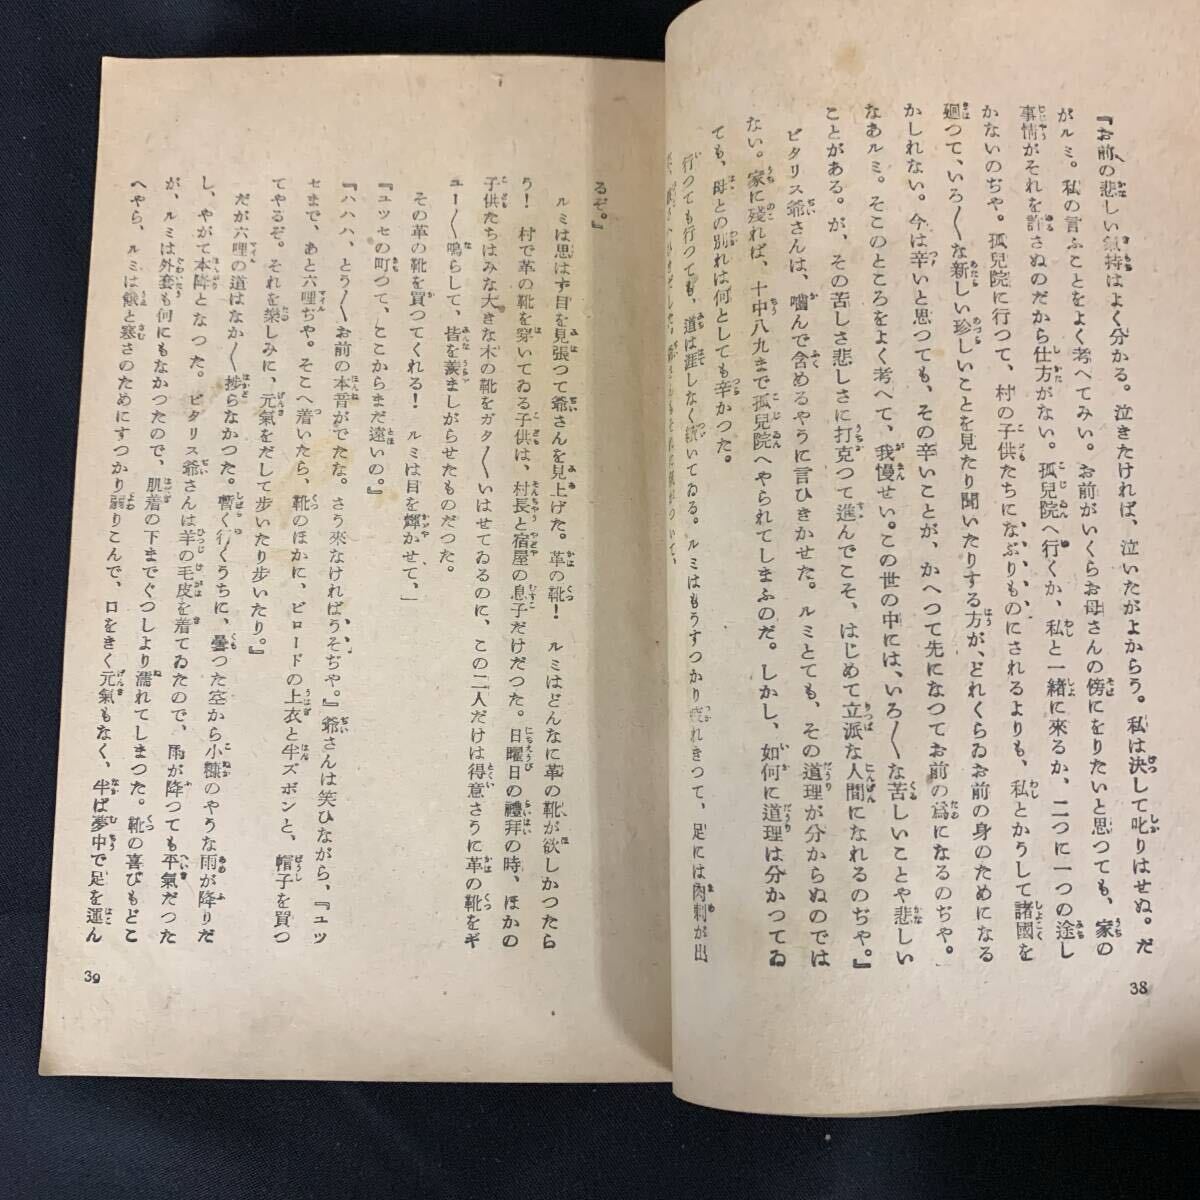 『お前の悲しい氣持はよく分かる。泣きたければ、泣いたがよからう。私は決して叱りはせぬ。だ
がルミ。私の言ふことをよく考へてみい。お前がいくらお母さんの傍にをりたいと思つても、家の
事情がそれを許さぬのだから仕方がない。孤兒院へ行くか、私と一緒に來るか、二つに一つの途し
かないのぢや。孤兒院に行つて、村の子供たちになぶりものにされるよりも、私とかうして諸國を
廻つて、いろ〱な新しい珍しいことを見たり聞いたりする方が、どれくらゐお前の身のためになる
かしれない。今は辛いと思つても、その辛いことが、かへつて先になつてお前の爲になるのぢや。
なあルミ。そこのところをよく考へて、我慢せい。この世の中には、いろ〱な苦しいことや悲しい
ことがある。が、その苦しさ悲しさに打克つて進んでこそ、はじめて立派な人間になれるのぢや。』
ビタリス爺さんは、嚙んで含めるやうに言ひきかせた。ルミとても、その道理が分からぬのでは
ない。家に殘れば、十中八九まで孤兒院へやられてしまふのだ。しかし、如何に道理は分かつてゐ
ても、母との別れは何としても辛かつた。
行つても行つても、道は涯しなく續いてゐる。ルミはもうすつかり疲れきつて、足には肉刺が出
38
るぞ。』
ルミは思はず目を見張つて爺さんを見上げた。革の靴！　ルミはどんなに革の靴が欲しかつたら
う！　村で革の靴を穿いてゐる子供は、村長と宿屋の息子だけだつた。日曜日の禮拜の時、ほかの
子供たちはみな大きな木の靴をガタ〱いはせてゐるのに、この二人だけは得意さうに革の靴をギ
ユー〱鳴らして、皆を羨ましがらせたものだつた。
その革の靴を買つてくれる！　ルミは目を輝かせて、
『ユツセの町つて、ここからまだ遠いの。』
『ハハハ、とう〱お前の本音がでたな。さう來なければうそぢや。』爺さんは笑ひながら、『ユツ
セまで、あと六哩ぢや。そこへ着いたら、靴のほかに、ビロードの上衣と半ズボンと、帽子を買つ
てやるぞ。それを樂しみに、元氣をだして歩いたり歩いたり。』
だが六哩の道はなか〱捗らなかつた。暫く行くうちに、曇つた空から小糠のやうな雨が降りだ
し、やがて本降となつた。ビタリス爺さんは羊の毛皮を着てゐたので、雨が降つても平氣だつた
が、ルミは外套も何にもなかつたので、肌着の下までぐつしより濡れてしまつた。靴の喜びもどこ
へやら、ルミは餓と寒さのためにすつかり弱りこんで、口をきく元氣もなく、半ば夢中で足を運ん
39